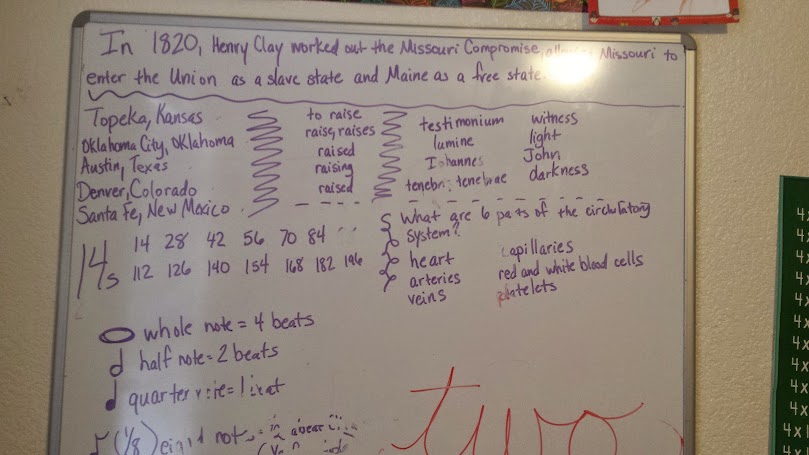 In 1820, Henry Clay worked out the Missouri Compromise, Missouri to
enter the Union as a slave state and Maine as a free state.
Topeka, Kansas
Oklahoma City, Oklahoma
Austin, Texas
Denver, Colorado
Santa Fe, New Mexico
to raise
raise, raises
raised
raising
raised
testimonium
lumine
Iohannes
tenebri: tenebrae
witness
light
John
darkness
14s
14 28 42 56 70 84
112 126 140 154 168 182 196
What are 6 parts of the circulatory
system?
heart
arteries
veins
capillaries
red and white blood cells
platelets
whole note = 4 beats
half note = 2 beats
quarter = 1 beat
(1/8)
two
4x
4x
4x
4x
4x
4x
4x
4x
4x
4x
4x
4x